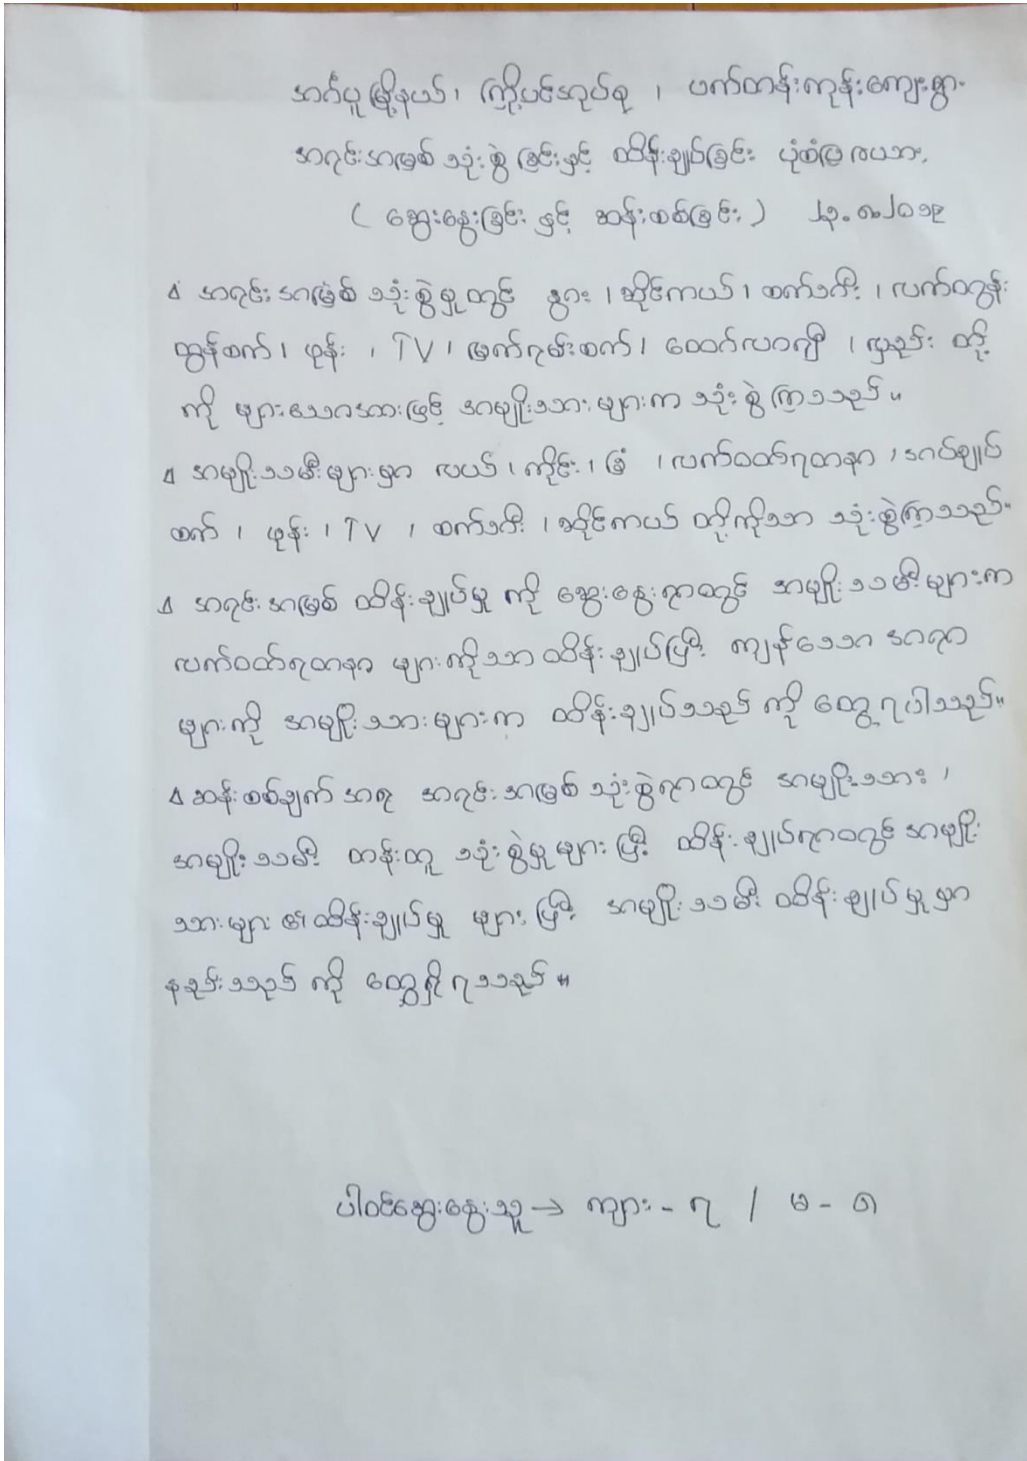 အင်္ဂပူမြို့နယ်၊ ကြို့ပင်အုပ်စု ၊ ဖက်တန်းကုန်းကျေးရွာ
အရင်းအမြစ် သုံးစွဲခြင်းနှင့် ထိန်းချုပ်ခြင်း ပုံစံပြဇယား
( ဆွေးနွေးခြင်း နှင့် ဆန်းစစ်ခြင်း ) ၂၃.၈.၂၀၁၉
Δ အရင်းအမြစ် သုံးစွဲမှုတွင် နွား ၊ ဆိုင်ကယ် ၊ စက်ဘီး ၊ လက်တွန်း
ထွန်စက် ၊ ဖုန်း ၊ TV ၊ မြက်ရမ်းစက် ၊ ထော်လာဂျီ ၊ လှည်း တို့
ကို များသောအားဖြင့် အမျိုးသားများက သုံးစွဲကြသည်။
Δ အမျိုးသမီးများမှာ လယ် ၊ ကိုင်း ၊ ခြံ ၊ လက်ဝတ်ရတနာ ၊ အပ်ချုပ်
စက် ၊ ဖုန်း ၊ TV ၊ စက်ဘီး ၊ ဆိုင်ကယ် တို့ကိုသာ သုံးစွဲကြသည်။
Δ အရင်းအမြစ် ထိန်းချုပ်မှု ကို ဆွေးနွေးရာတွင် အမျိုးသမီးများက
လက်ဝတ်ရတနာ များကိုသာ ထိန်းချုပ်ပြီး ကျန်သော အရာ
များကို အမျိုးသားများက ထိန်းချုပ်သည် ကို တွေ့ရပါသည်။
Δ ဆန်းစစ်ချက် အရ အရင်းအမြစ် သုံးစွဲရာတွင် အမျိုးသား ၊
အမျိုးသမီး တန်းတူ သုံးစွဲမှုများ ပြီး ထိန်းချုပ်ရာတွင် အမျိုး
သားများ ၏ ထိန်းချုပ်မှု များ ပြီး အမျိုးသမီး ထိန်းချုပ်မှုမှာ
နည်းသည် ကို တွေ့ရှိရသည် ။
ပါဝင်ဆွေးနွေးသူ → ကျား - ၇ / မ - ၈